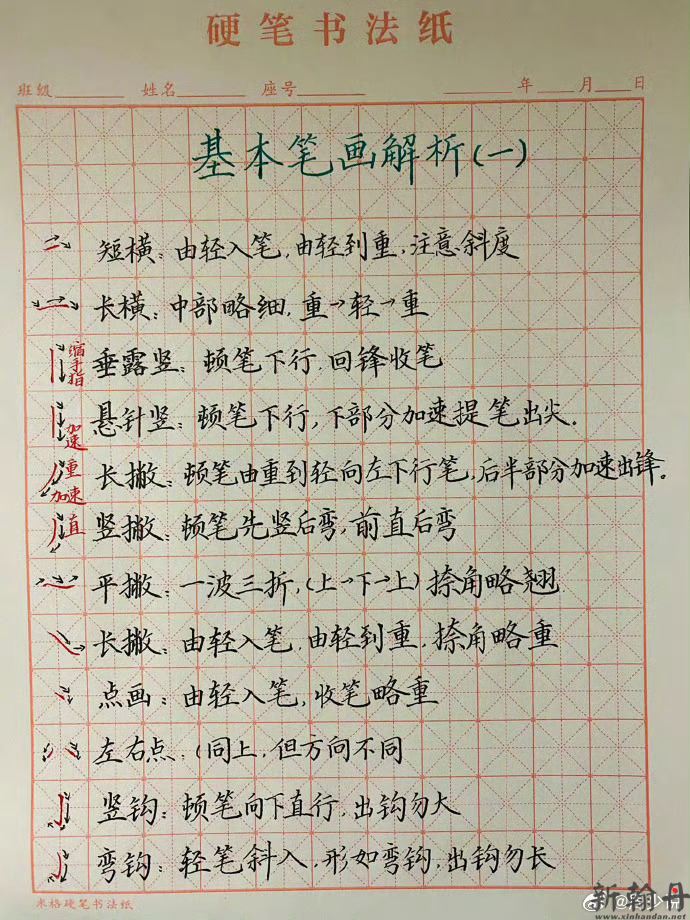 硬笔书法纸
班级 姓名 座号 年 月 日
基本笔画解析(一)
短横：由轻入笔，由轻到重，注意斜度
长横：中部略细，重→轻→重
缩手指
垂露竖：顿笔下行，回锋收笔
加速
悬针竖：顿笔下行，下部分加速提笔出尖.
重
加速
长撇：顿笔由重到轻向左下行笔，后半部分加速出锋.
直
竖撇：顿笔先竖后弯，前直后弯
平撇：一波三折，(上→下→上)捺角略翘
长撇：由轻入笔，由轻到重，捺角略重
点画：由轻入笔，收笔略重
左右点：(同上，但方向不同
竖钩：顿笔向下直行，出钩勿大
弯钩：轻笔斜入，形如弯钩，出钩勿长
米格硬笔书法纸
新翰丹
www.xinhandan.net